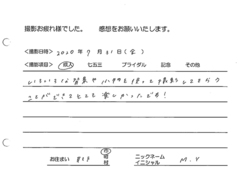 撮影お疲れ様でした。 感想をお願いいたします。
<撮影日時> 2020年7月31日(金)
<撮影項目> 成人 七五三 ブライダル 記念 その他
いろいろな背景や小物を使って撮影してもらう
ことができてとても楽しかったです!
お住まい 市 ニックネーム
イニシャル M.Y